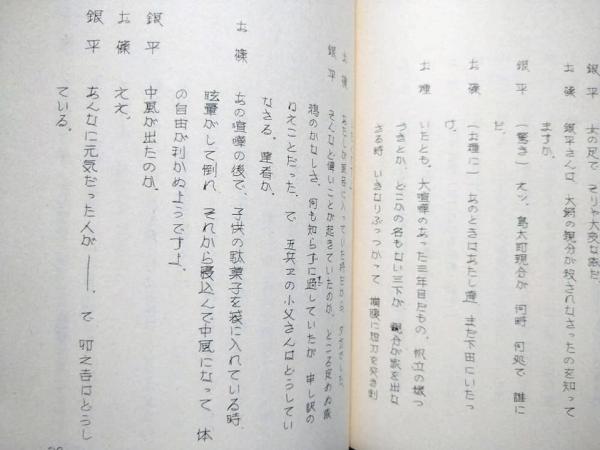 銀平 女の足で、そりゃ大変な旅だ。
お篠 銀平さんは、大綱の親分が殺されなさったのを知って
ますか。
銀平 （驚き）えッ、島太町親分が、何時、何処で、誰に
だ。
お篠 （お種に）あのときはあたし達、まだ下田にいたっ
け。
お種 いたとも、大喧嘩のあった三年目だもの。帆立の嬢っ
つきとか、どこかの名もない三下が、親分が家を出な
さる時、いきなりぶっつかって、横腹に短刀を突き刺
お篠
銀平 そんなど偉いことが起きていたのか。ところ定めぬ旅
鴉のかなしさ、何も知らずに過していたが、申し訳の
ねえことだった。で、五兵ヱの小父さんはどうしてい
なさる。達者か。
お篠 あの喧嘩の後で、子供の駄菓子を袋に入れている時、
眩暈がして倒れ、それから寝込んで中風になって、体
の自由が利かぬようですよ。
銀平 中風が出たのか。
お篠 ええ。
銀平 あんなに元気だった人が――。で、卯之吉はどうし
ている。